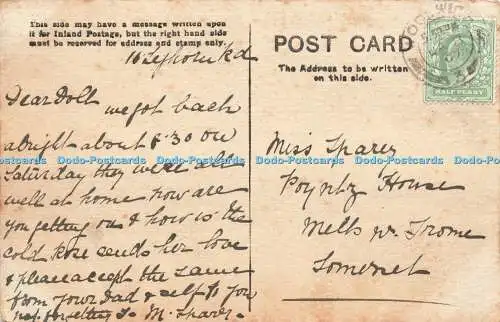 This side may have a message written upon
it for Inland Postage, but the right hand side
must be reserved for address and stamp only.
POST CARD
The Address to be written
on this side.
HALFPENNY
Dear Doll
we got back
alright about 8.30 on
Saturday they were all
well at home how are
you getting on & how is the
cold Rose sends her love
& please accept the same
from your Dad & self to you
not forgetting
Miss Sparey
Poyntz House
Mells nr Frome
Somerset
Dodo-Postcards Dodo-Postcards Dodo-Postcards Dodo-Postcards Dodo-Postcards